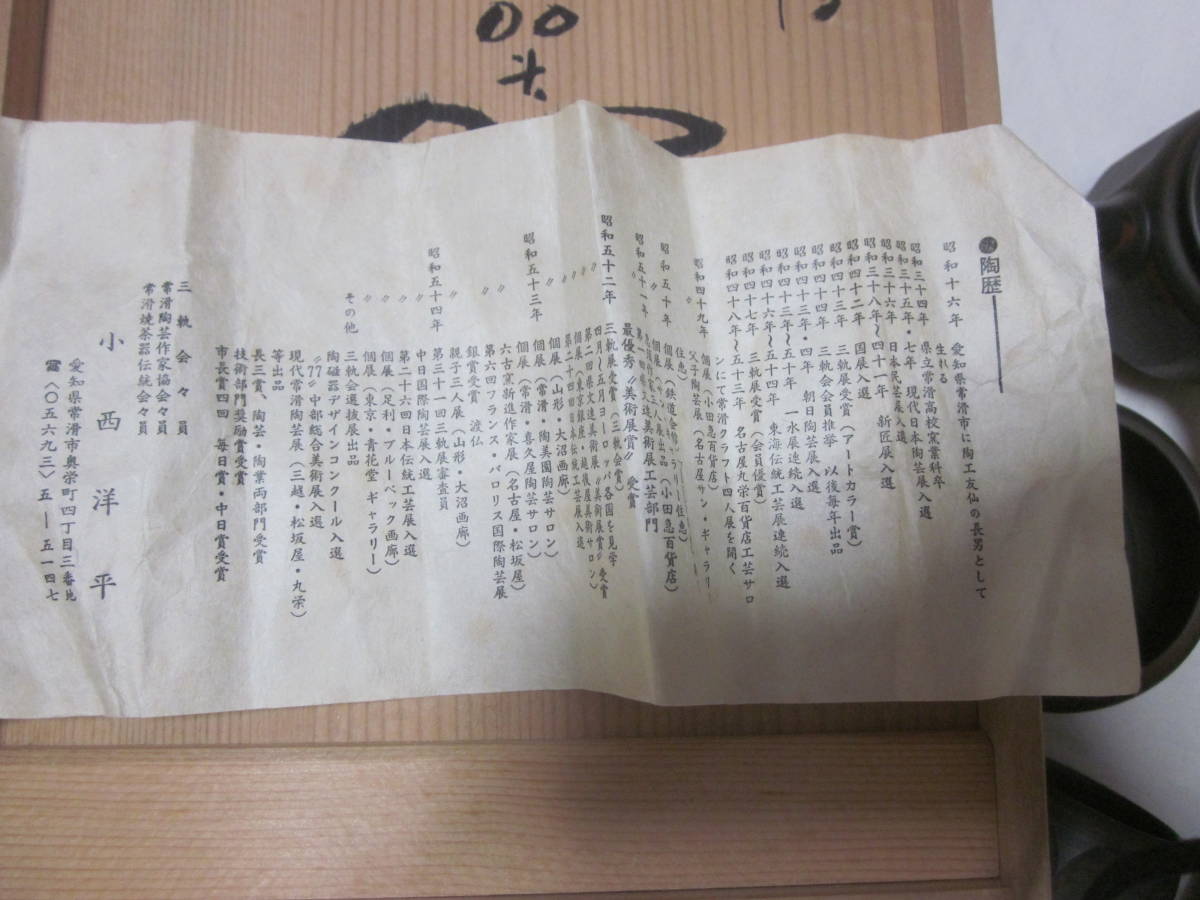 陶歴
昭和十六年 愛知県常滑市に陶工友仙の長男として
生れる
昭和三十四年 県立常滑高校窯業科卒
昭和三十五年・七年 現代日本陶芸展入選
昭和三十六年 日本民芸展入選
昭和三十八年〜四十一年 新匠展入選
昭和四十二年 国展入選
三軌展受賞(アートカラー賞)
昭和四十四年 三軌会会員推挙 以後毎年出品
昭和四十三年・四年 朝日陶芸展入選
昭和四十三年〜五十年 一水展連続入選
昭和四十六年〜五十四年 東海伝統工芸展連続入選
昭和四十七年 三軌展受賞(会員優賞)
昭和四十八年〜五十三年 名古屋丸栄百貨店工芸サロ
ンにて常滑クラフト四人展を開く
昭和四十九年 個展(小田急百貨店)
父子陶芸展(名古屋サン・ギャラリー
住恵)
昭和五十年 個展(鉄道会館ギャラリー住恵)
昭和五十一年
最優秀〝美術展賞〟受賞
昭和五十二年 三軌展受賞(三軌会賞)
〃 四月〜五月ヨーロッパ各国を見学
〃 第二回県文連美術展〝美術展賞〟受賞
〃 個展(東京銀座・越後屋美術サロン)
〃 第二十四回日本伝統工芸展入選
〃 個展(山形・大沼画廊)
昭和五十三年 個展(常滑・陶美園陶芸サロン)
〃 個展(常滑・喜久屋陶芸サロン)
〃 六古窯新進作家展(名古屋・松坂屋)
〃 第六回フランス・バロリス国際陶芸展
銀賞受賞 渡仏
〃 親子三人展(山形・大沼画廊)
昭和五十四年 第三十一回三軌展審査員
〃 中日国際陶芸展入選
〃 第二十六回日本伝統工芸展入選
〃 個展(足利・ブルーベック画廊)
〃 個展(東京・青花堂ギャラリー)
その他 三軌会選抜展出品
陶磁器デザインコンクール入選
〝77〟中部総合美術展入選
現代常滑陶芸展(三越・松坂屋・丸栄)
等出品
長三賞、陶芸・陶業両部門受賞
技術部門奨励賞受賞
市長賞四回 毎日賞・中日賞受賞
三軌会々員
常滑陶芸作家協会々員
常滑焼茶器伝統会々員
小西洋平
愛知県常滑市奥栄町四丁目三番地
☎〈〇五六九三〉五—五一四七